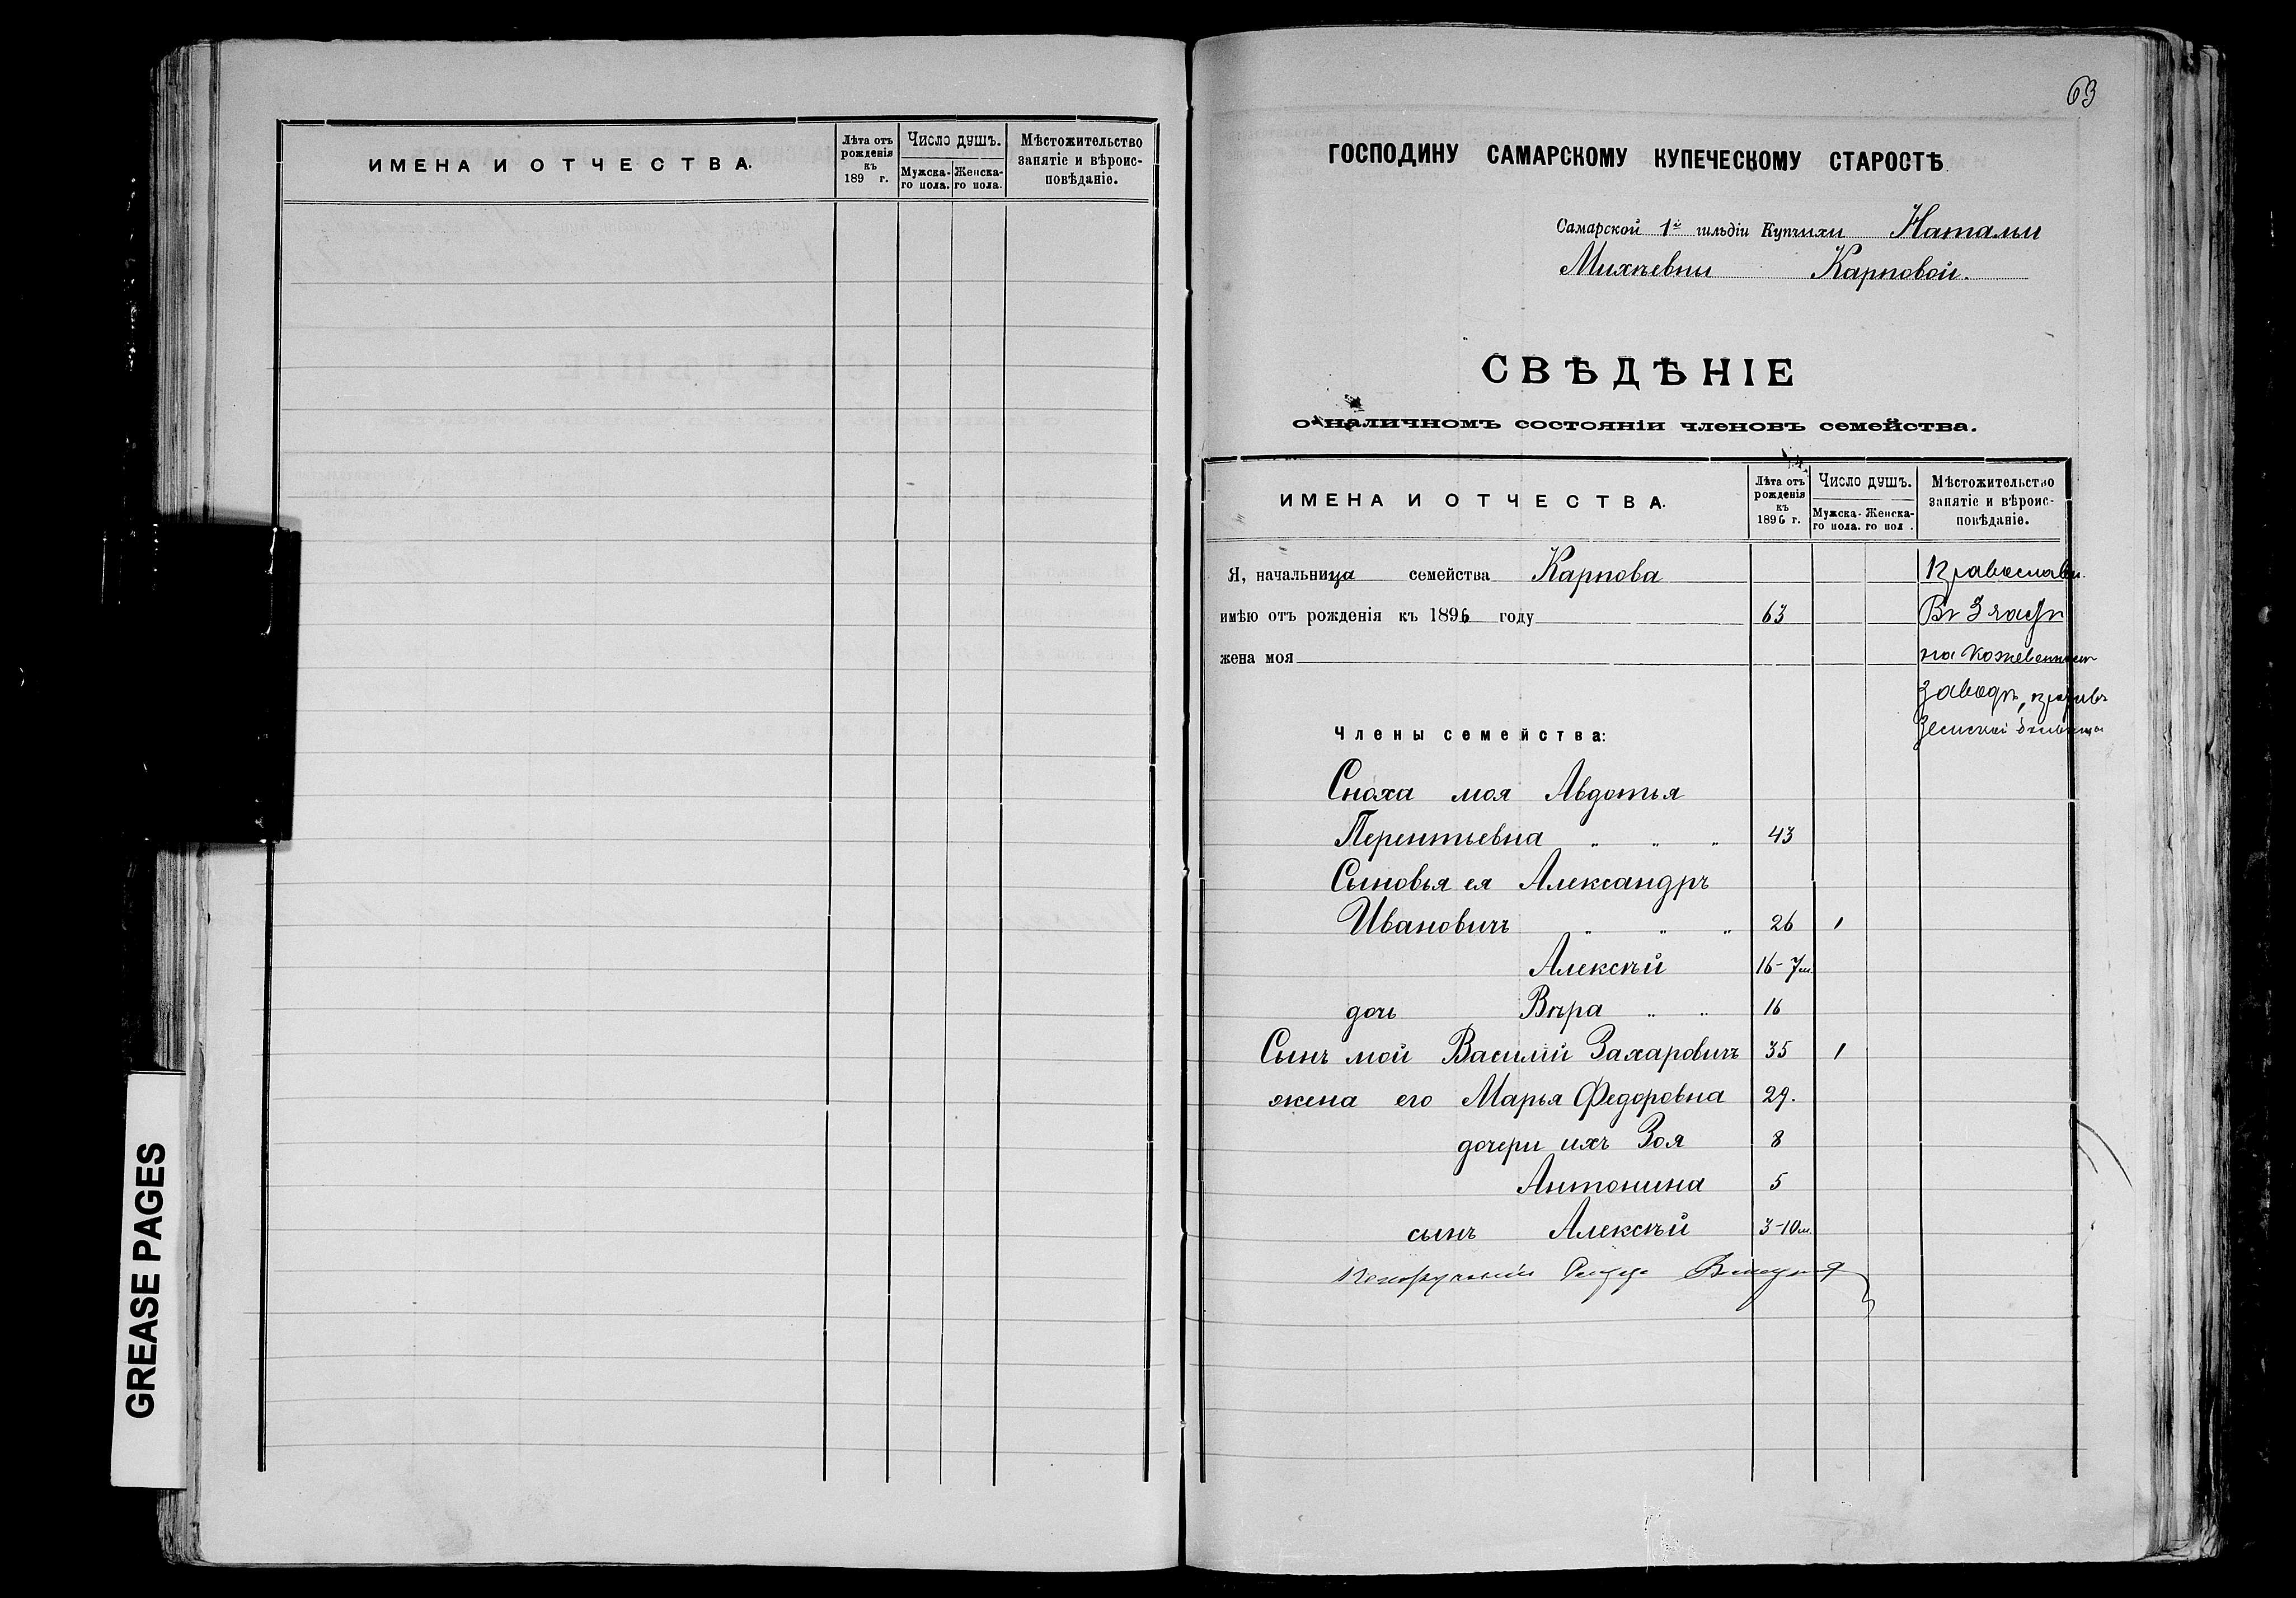 ИМЕНА И ОТЧЕСТВА.
Лѣта отъ рожденія къ 189 г.
Число душъ.
Мужска-го пола.
Женска-го пола.
Мѣстожительство занятіе и вѣроис-повѣданіе.
GREASE PAGES
63
ГОСПОДИНУ САМАРСКОМУ КУПЕЧЕСКОМУ СТАРОСТѢ
Самарской 1й гильдіи Купчихи Натальи
Михѣевны Карповой.
СВѢДѢНІЕ
о наличномъ состояніи членовъ семейства.
ИМЕНА И ОТЧЕСТВА.
Лѣта отъ рожденія къ 1896 г.
Число душъ.
Мужска-го пола.
Женска-го пол .
Мѣстожительство занятіе и вѣроис-повѣданіе.
Я, начальница семейства Карпова Православн.
имѣю отъ рожденія къ 1896 году 63 Въ 3 части
жена моя на кожевенномъ
заводѣ, противъ
Земской больницы
Члены семейства:
Сноха моя Авдотья
Терентьевна " " " 43
Сыновья ея Александръ
Ивановичъ " " " 26 1
Алексѣй 16-7м.
дочь Вѣра " " 16
Сынъ мой Василій Захаровичъ 35 1
жена его Марья Федоровна 29.
дочери ихъ Зоя 8
Антонина 5
сынъ Алексѣй 3-10м.